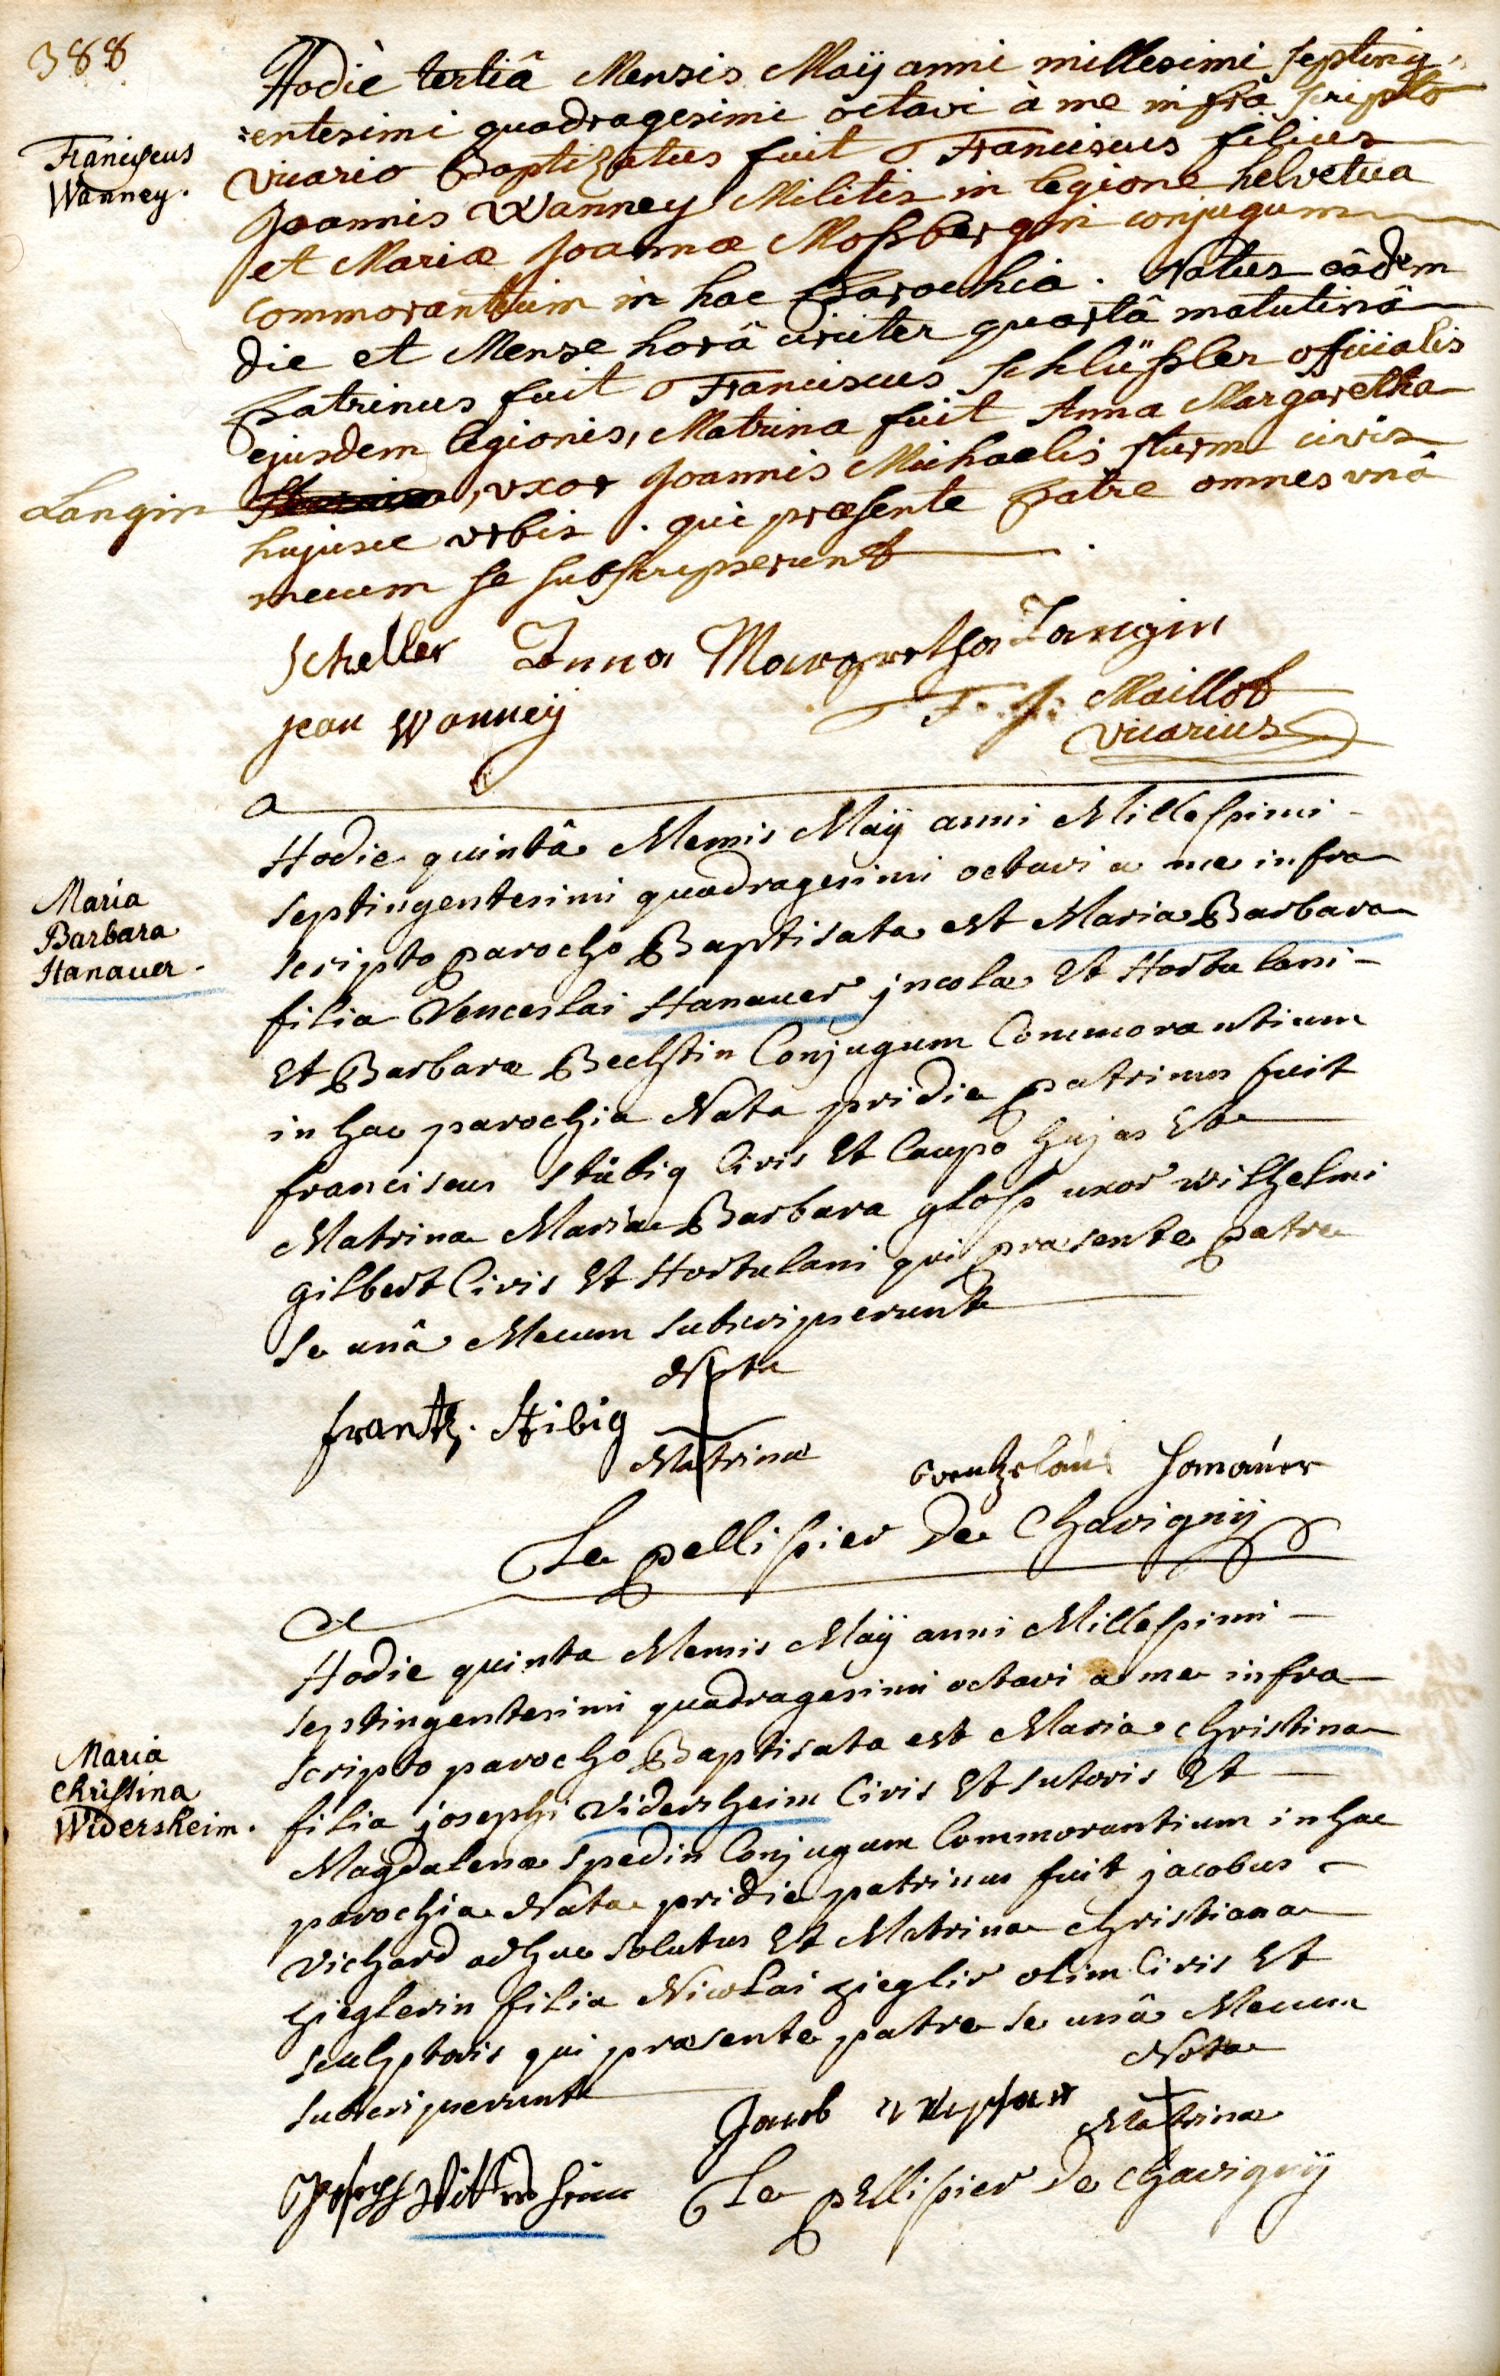 388
Franciscus
Wanney.
Hodiè tertiâ Mensis Maÿ anni millesimi septing,
:entesimi quadragesimi octavi à me infra scripto
vicario Baptizatus fuit Franciscus filius
Joannis Wanney Militis in legione helvetica
et Mariæ Joannæ Moßbergerin conjugum
commorantium in hac Parochia. Natus eâdem
die et Mense horâ circiter quartâ matutinâ
Patrinus fuit Franciscus Schlüßler officialis
ejusdem legionis, Matrina fuit Anna Margaretha
Langin
, uxor Joannis Michaelis Sturm civis
hujusce urbis. qui præsente Patre omnes unâ
mecum se subscripserunt
Scheller Anna Margretha Langin
Jean Wanneÿ
F. J. Maillot
vicarius
Maria
Barbara
Hanauer.
Hodie quintâ Mensis Maÿ anni Millessimi
septingentesimi quadragesimi octavi a me infra
scripto parocho Baptisata est Maria Barbara
filia Venceslai Hanauer jncolæ Et Hortulani
Et Barbaræ Bechstin Conjugum Commorantium
in hac parochia Nata pridie patrinus fuit
franciscus Stübig Civis Et Caupo hujas Et
Matrina Maria Barbara gloss uxor wilhelmi
gilbert Civis Et Hortulani qui præsente patre
se unâ Mecum subscripserunt
Nota
frantz. Stibig
Matrinæ
Hanauer
Le pellissier De Chavignÿ
Maria
Christina
Widersheim.
Hodie quinta Mensis Maÿ anni Millessimi
septingentesimi quadragesimi octavi a me infra
scripto parocho Baptisata est Maria christina
filia josephi Vidersheim Civis Et sutoris Et
Magdalenæ spedin Conjugum Commorantium in hac
parochia Nata pridie patrinus fuit jacobus
Vichard adhuc solutus Et Matrina christiana
zieglerin filia Nicolai zieglir olim Civis Et
sculptoris qui præsente patre se unâ Mecum
Nota
subscripserunt
Jacob
Matrinæ
Le pellissier De chavignÿ